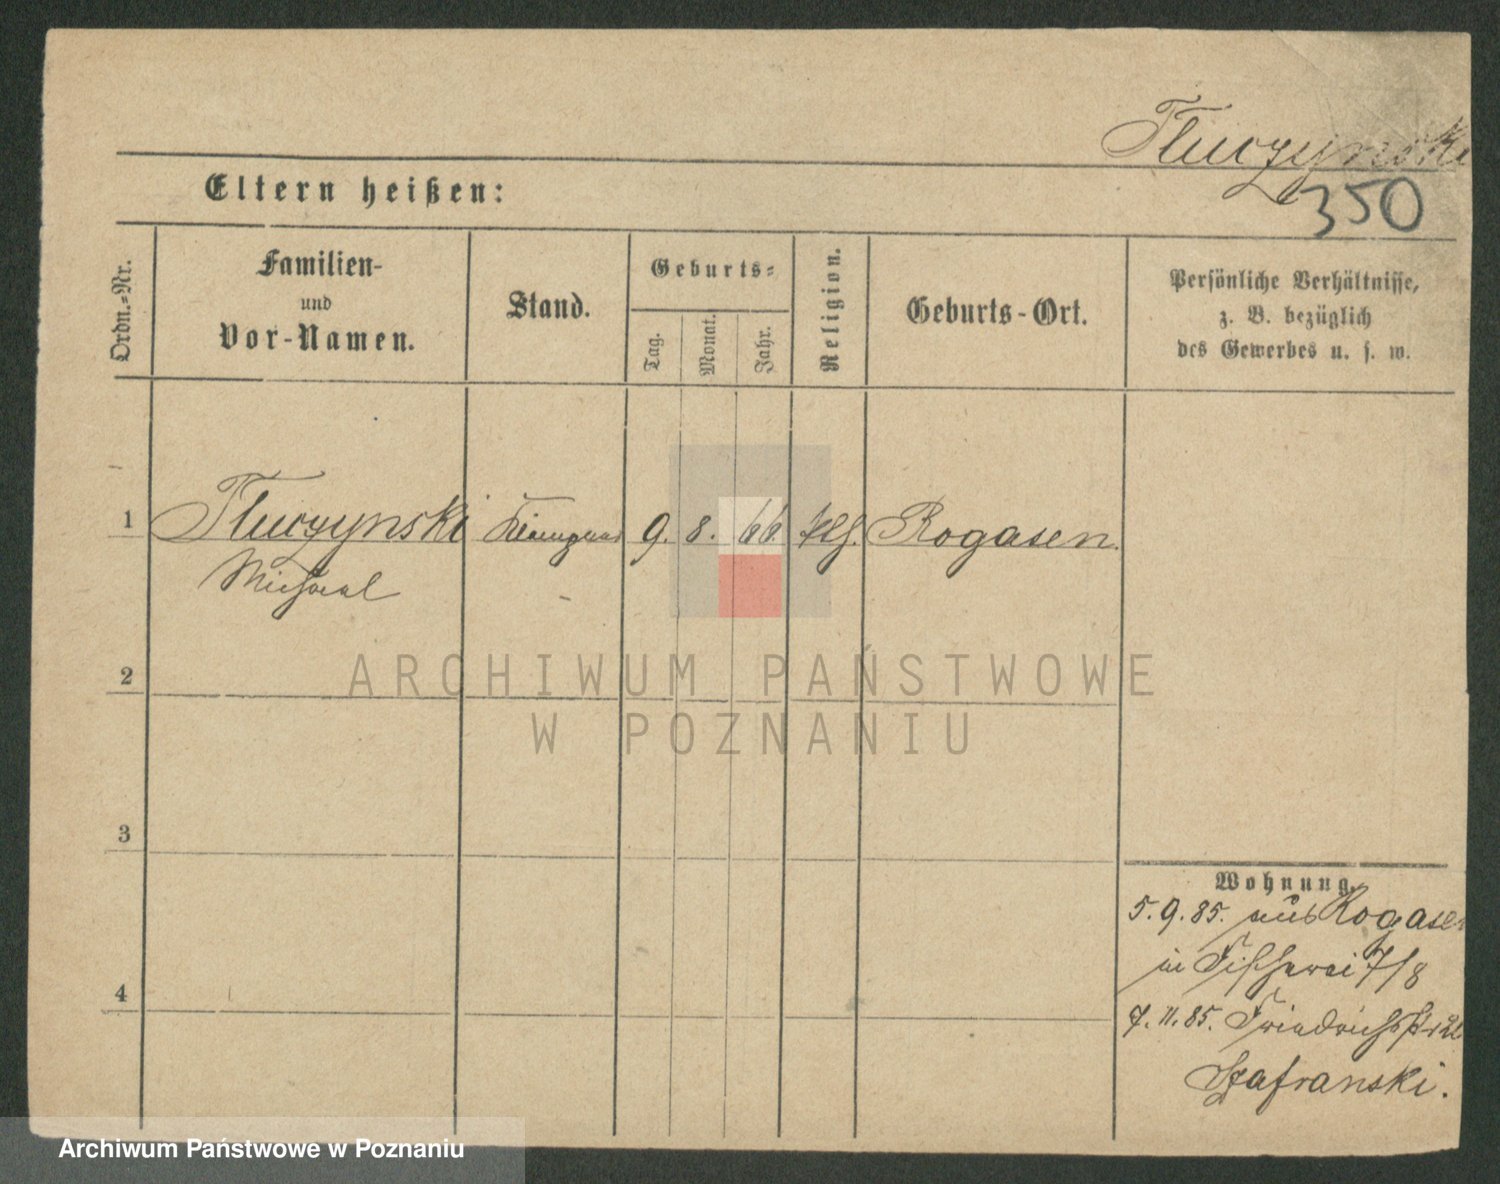 Tluczynski
350
Eltern heißen:
Ordn.-Nr.
Familien-
und
Vor-Namen.
Stand.
Geburts-
Tag.
Monat.
Jahr.
Religion.
Geburts-Ort.
Persönliche Verhältnisse,
z. B. bezüglich
des Gewerbes u. s. w.
1
Tluczynski
9. 8. 66. Rogasen.
Michael
2
3
4
ARCHIWUM PAŃSTWOWE
W POZNANIU
Wohnung.
5. 9. 85. aus Rogasen
in Fischerei 7/8
7. 11. 85. Friedrichstr 22
Szafranski.
Archiwum Państwowe w Poznaniu